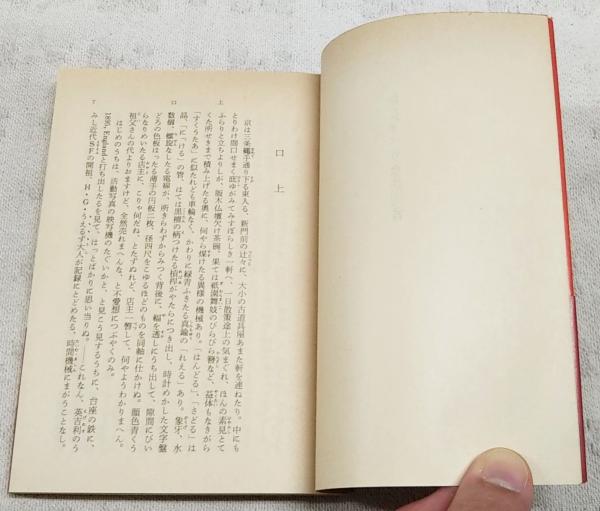 口上
京は三条縄手通り下る東入る、新門前の辻々に、大小の古道具屋あまた軒を連ねたり。中にも
とりわけ間口せまく庇ゆがみてみすぼらしき一軒へ、一日散策途上の気まぐれ、ほんの素見とて
ふらりと立ちよりしが、版木仏壇欠け茶碗、果ては祇園舞妓のびらびら簪など、益体もなきがら
くた所せきまで積み上げたる奥に、何やら煤けたる異様の機械あり。「はんどる」、「さどる」は
「すくうたあ」に似たれども車輪なく、かわりに緑青ふきたる真鍮の「れえる」あり。象牙、水
晶、「にくける」の管、はては黒檀の柄つけたる槓桿がやたらにつき出し、時計めかした文字盤
数個、螺旋なしたる電線が、所きらわずからみつく背後に、輻を透しにうち出して、隙間にびい
どろの色板はったる薄手の円板二枚、径四尺をこゆるほどのものを同軸に仕かけぬ。顔色青くう
らなりめいたる店主に、こりゃ何だね、とたずぬれど、店主一瞥して、何やようわかりまへん。
祖父さんの代よりおますけど、全然売れまへんな、と不愛想につぶやくのみ。
はじめのうちは、活動写真の映写機のたぐいかと、と見こう見するうちに、台座の鉄に、
1895, England と打ち出したるを見て、は﹅っ﹅とばかりに思い当りぬ。――これなん、英吉利のう
みし近代SFの開祖、H・G・うえるず大人が記録にとどめたる、時間機械にまがうことなし。
上
口
7